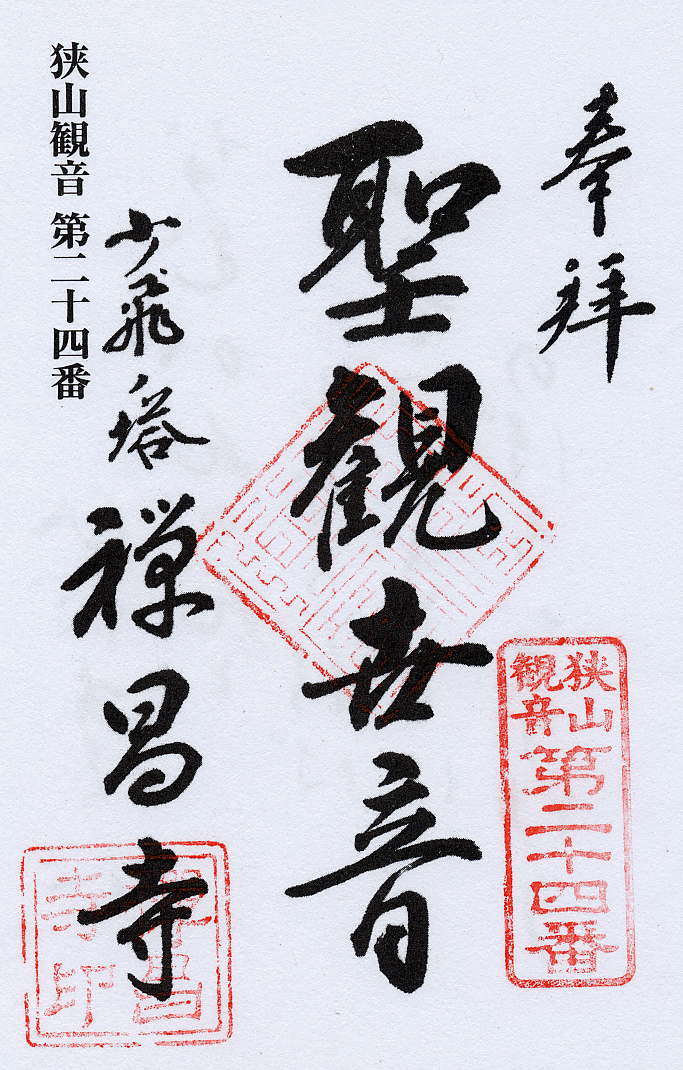 奉拝
狭山観音
第二十四番
聖観世音
少飛塔 禅昌寺
禅昌寺印
狭山観音 第二十四番